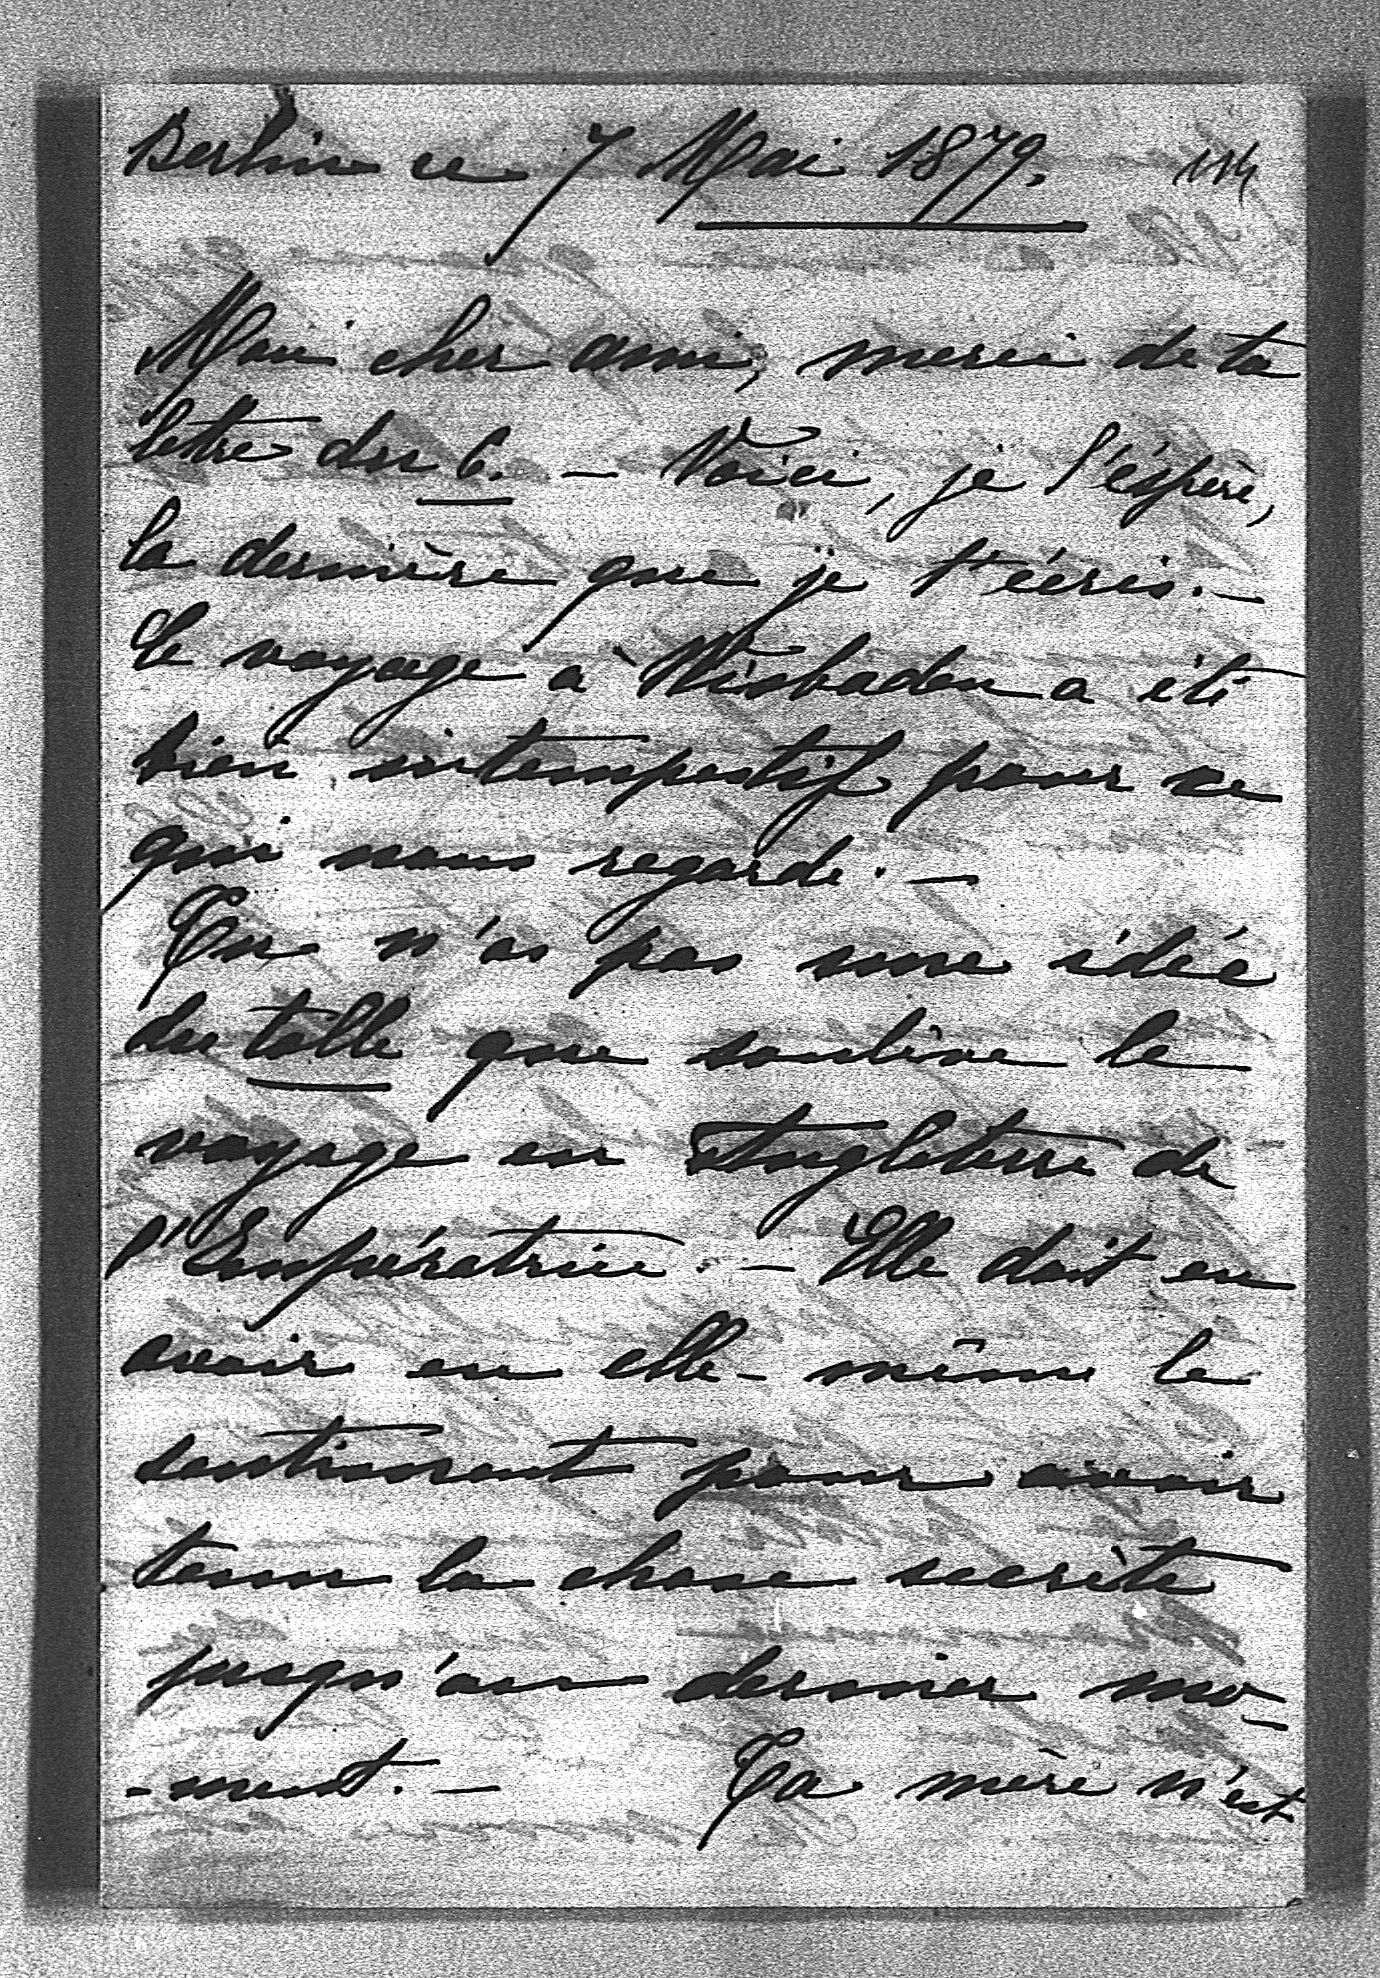 Berlin ce 7 Mai 1879.
Mon cher ami, merci de ta
lettre du 6. – Voici, je l'éspère,
la dernière que je t'écris. –
Le voyage à Wisbaden a été
bien intempestif pour ce
qui nous regarde. –
Tu n'as pas une idée
du tolle que soulève le
voyage en Angleterre de
l'Impératrice. – Elle doit en
avoir en elle-même le
sentiment pour avoir
tenu la chose secrète
jusqu'au dernier mo-
-ment. – Ta mère n'est